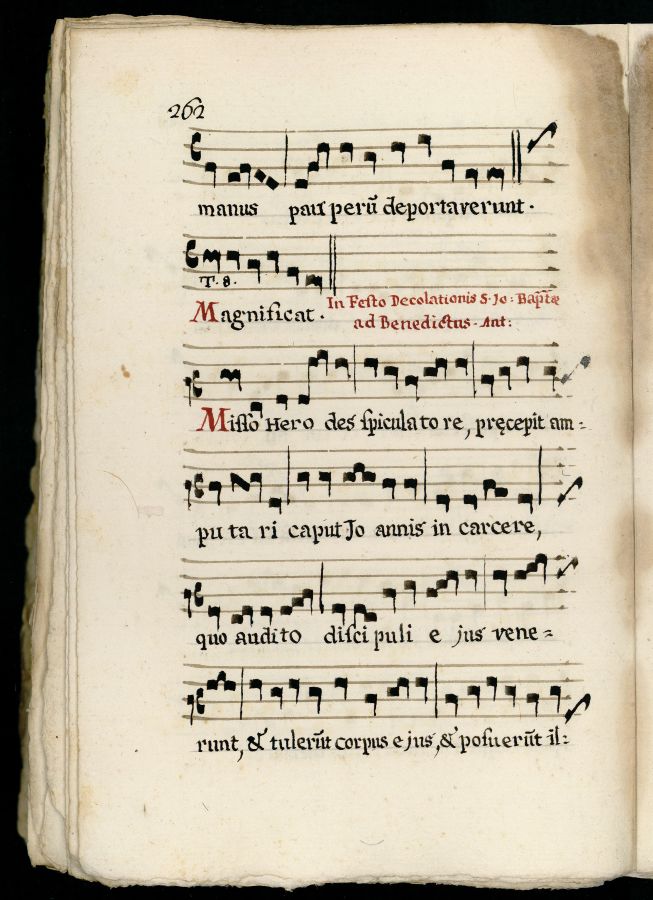 262
manus pau perũ deportaverunt.
T. 8.
Magnificat. In Festo Decolationis S. Jo: Baptæ
ad Benedictus. Ant:
Misso Hero des spicula to re, pręcepit am=
pu ta ri caput Jo annis in carcere,
quo audito disci puli e jus vene=
runt, & tulerũt corpus e jus, & posuerũt il=